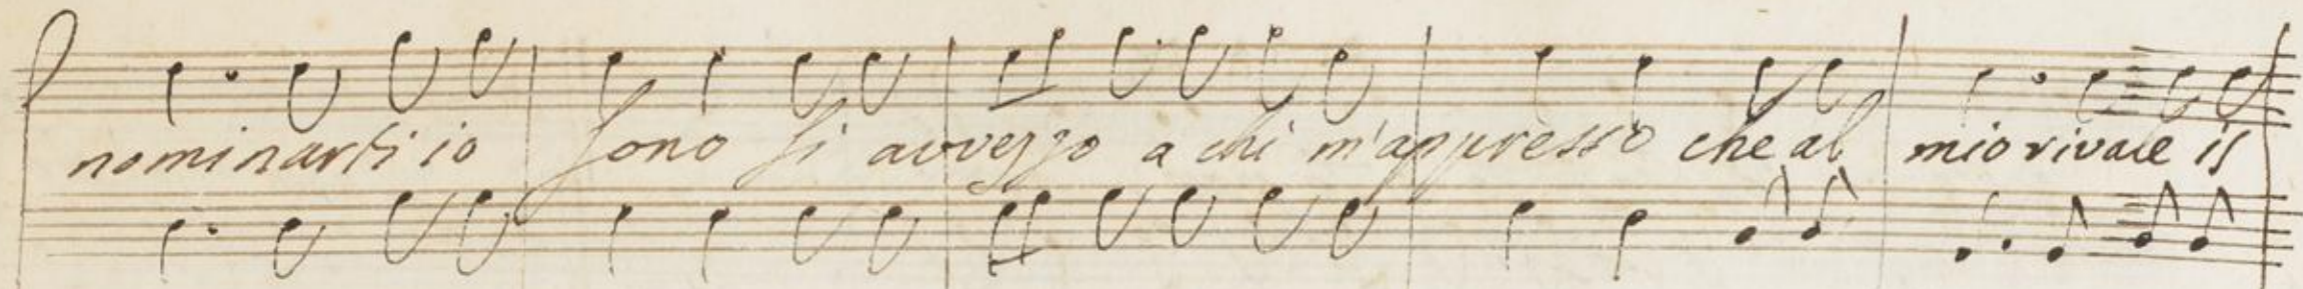 nominarti io sono si avvezzo a chi m'appresso che al mio rivale is